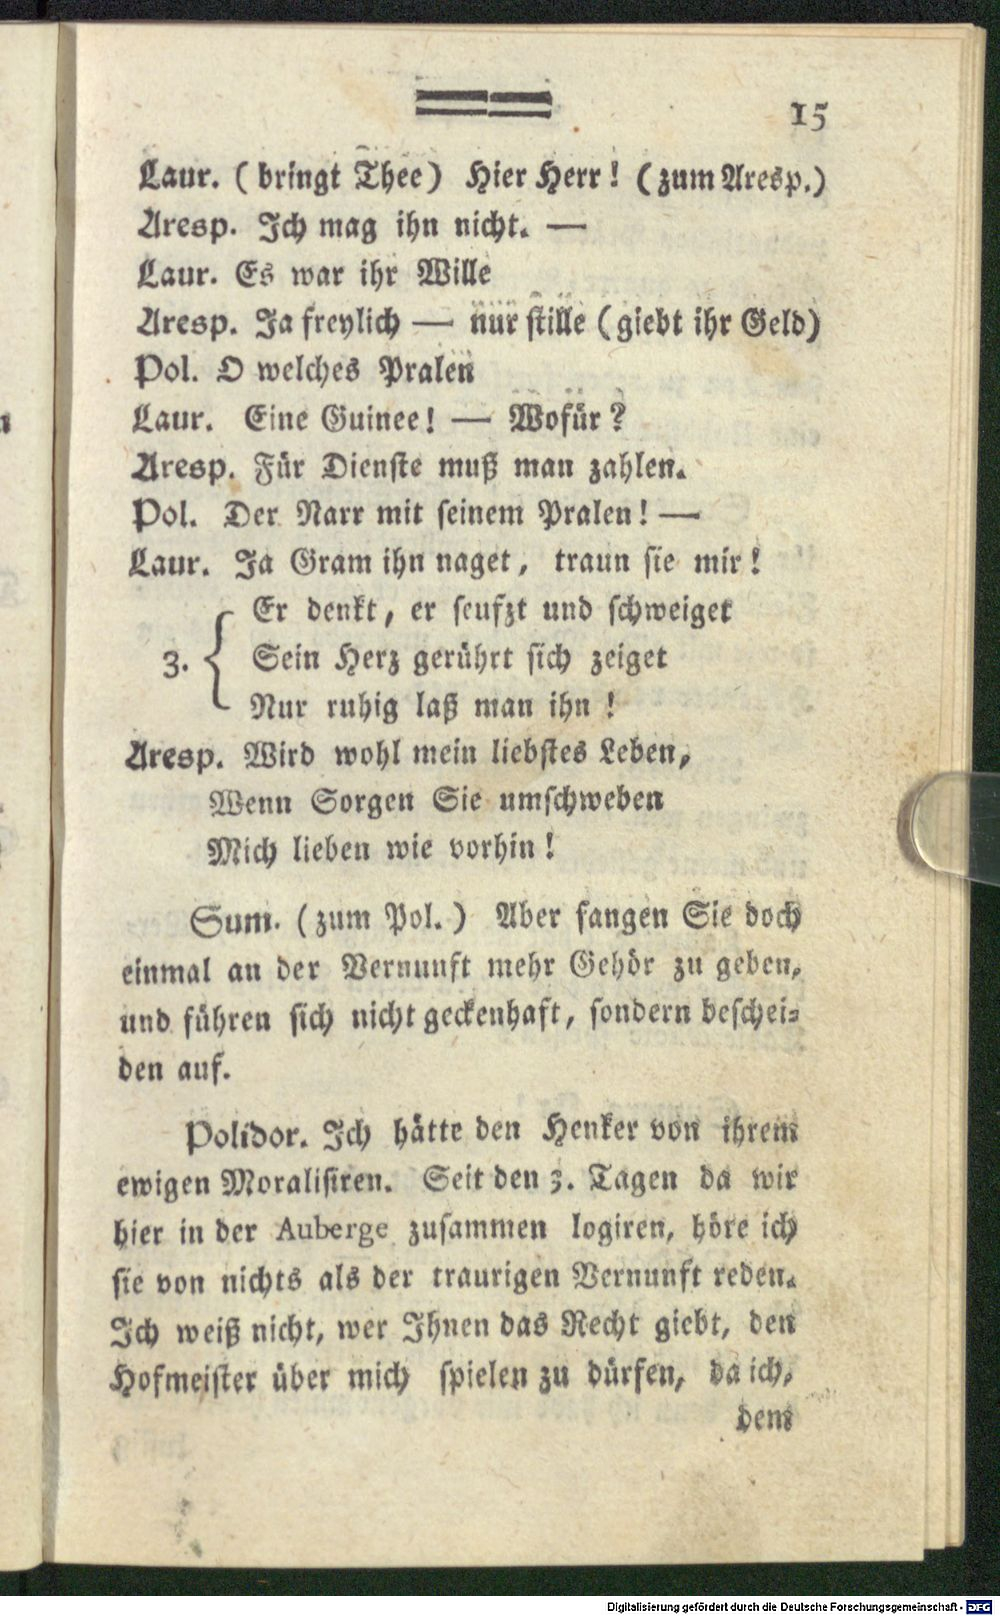 15
Laur. (bringt Thee) Hier Herr! (zum Aresp.)
Aresp. Ich mag ihn nicht. —
Laur. Es war ihr Wille
Aresp. Ja freylich — nur stille (giebt ihr Geld)
Pol. O welches Pralen
Laur. Eine Guinee! — Wofür?
Aresp. Für Dienste muß man zahlen.
Pol. Der Narr mit seinem Pralen! —
Laur. Ja Gram ihn naget, traun sie mir!
Er denkt, er seufzt und schweiget
3. { Sein Herz gerührt sich zeiget
Nur ruhig laß man ihn!
Aresp. Wird wohl mein liebstes Leben,
Wenn Sorgen Sie umschweben
Mich lieben wie vorhin!
Sum. (zum Pol.) Aber fangen Sie doch
einmal an der Vernunft mehr Gehör zu geben,
und führen sich nicht geckenhaft, sondern beschei-
den auf.
Polidor. Ich hätte den Henker von ihrem
ewigen Moralisiren. Seit den 3. Tagen da wir
hier in der Auberge zusammen logiren, höre ich
sie von nichts als der traurigen Vernunft reden.
Ich weiß nicht, wer Ihnen das Recht giebt, den
Hofmeister über mich spielen zu dürfen, da ich,
dem
Digitalisierung gefördert durch die Deutsche Forschungsgemeinschaft - DFG